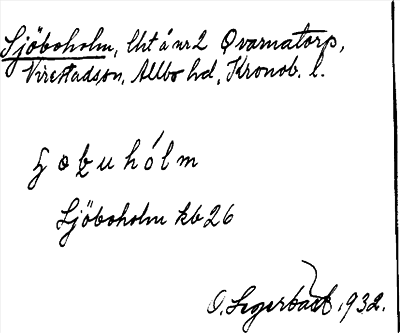 Sjöboholm, lht å nr 2 Qvarnatorp,
Virestads sn, Allbo hd, Kronob. l.
Sjöboholm kb 26
O. Segerbäck 1932.